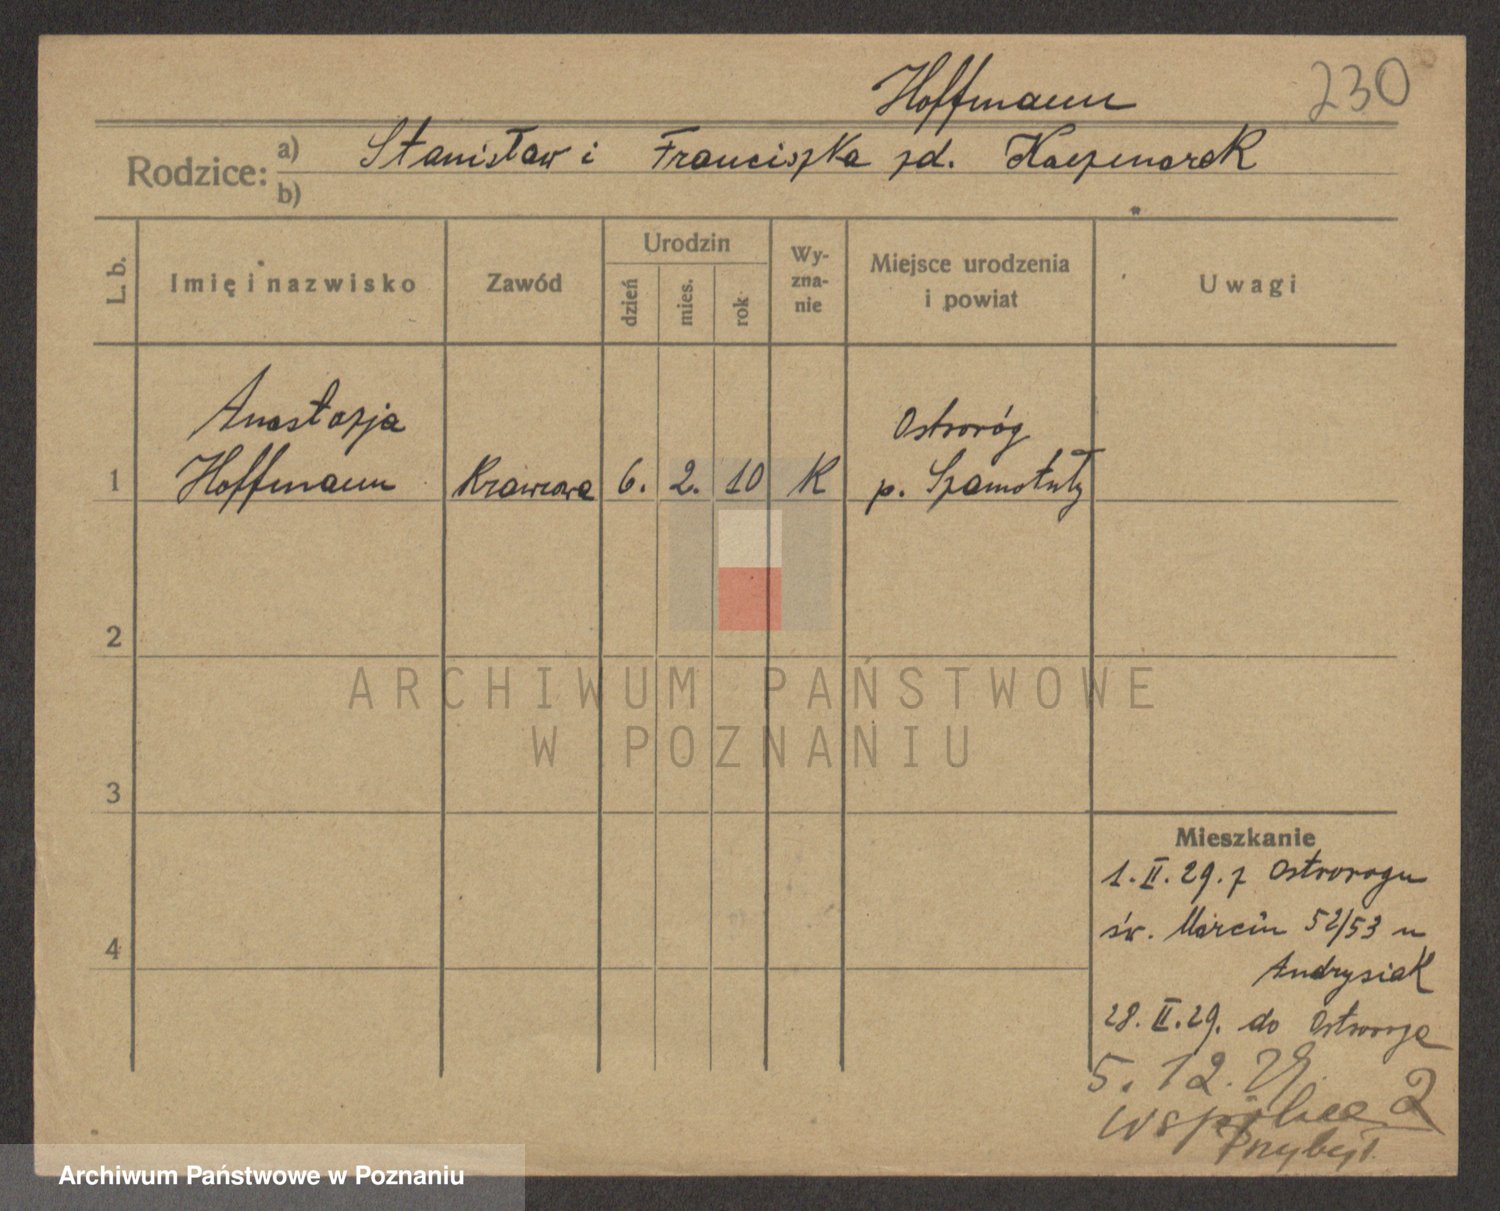 Hoffmann
230
Rodzice: a) Stanisław i Franciszka zd. Kaczmarek
b)
L. b.
Imię i nazwisko
Zawód
Urodzin
dzień
mies.
rok
Wy-
zna-
nie
Miejsce urodzenia
i powiat
Uwagi
Anastazja
Ostroróg
1 Hoffmann Krawcowa 6. 2. 10 K p. Szamotuły
2
ARCHIWUM PAŃSTWOWE
W POZNANIU
3
Mieszkanie
1.II.29. z Ostroroga
św. Marcin 52/53 u
4
Andrysiak
28.II.29. do Ostroroga
5.12.29.
Wspólna 2
Przybył.
Archiwum Państwowe w Poznaniu